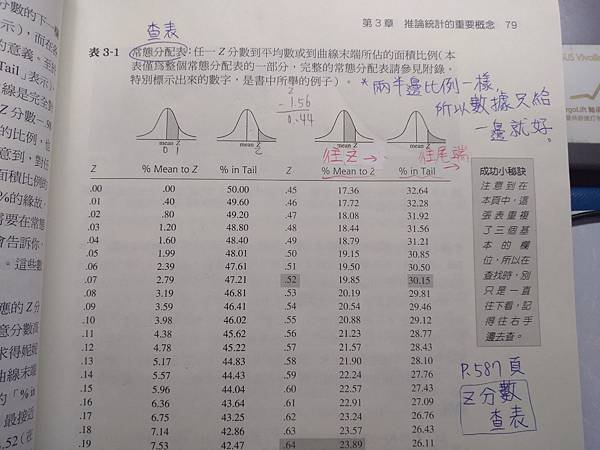 第 3 章 推論統計的重要概念 79
查表
表 3-1 常態分配表:任一 Z 分數到平均數或到曲線末端所佔的面積比例(本
表僅為整個常態分配表的一部分,完整的常態分配表請參見附錄。
特別標示出來的數字,是書中所舉的例子)。
*兩半邊比例一樣,
所以數據只給
一邊就好。
2
- 1.56
0.44
mean Z mean Z mean Z mean Z
0 1
往Z → 往尾端 →
Z % Mean to Z % in Tail Z % Mean to Z % in Tail
.00 .00 50.00 .45 17.36 32.64
.01 .40 49.60 .46 17.72 32.28
.02 .80 49.20 .47 18.08 31.92
.03 1.20 48.80 .48 18.44 31.56
.04 1.60 48.40 .49 18.79 31.21
.05 1.99 48.01 .50 19.15 30.85
.06 2.39 47.61 .51 19.50 30.50
.07 2.79 47.21 .52 19.85 30.15
.08 3.19 46.81 .53 20.19 29.81
.09 3.59 46.41 .54 20.54 29.46
.10 3.98 46.02 .55 20.88 29.12
.11 4.38 45.62 .56 21.23 28.77
.12 4.78 45.22 .57 21.57 28.43
.13 5.17 44.83 .58 21.90 28.10
.14 5.57 44.43 .59 22.24 27.76
.15 5.96 44.04 .60 22.57 27.43
.16 6.36 43.64 .61 22.91 27.09
.17 6.75 43.25 .62 23.24 26.76
.18 7.14 42.86 .63 23.57 26.43
.19 7.53 42.47 .64 23.89 26.11
成功小秘訣
注意到在
本頁中,這
張表重複
了三個基
本的欄
位,所以在
查找時,別
只是一直
往下看,記
得往右手
邊去查。
P.587頁
Z分數
查表